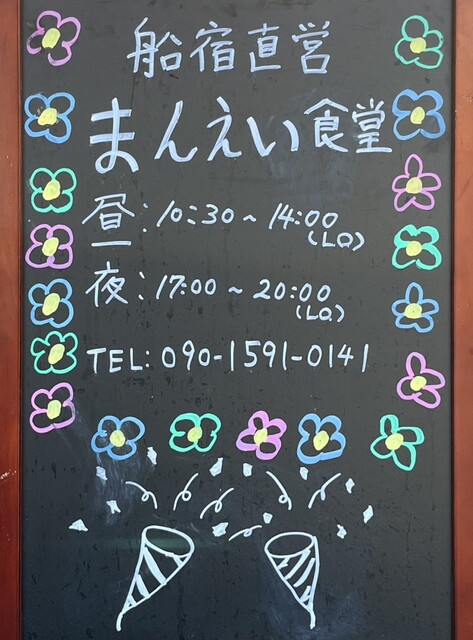 船宿直営
まんえい食堂
昼:10:30~14:00
(L.O)
夜:17:00~20:00
(L.O.)
TEL:090-1591-0141